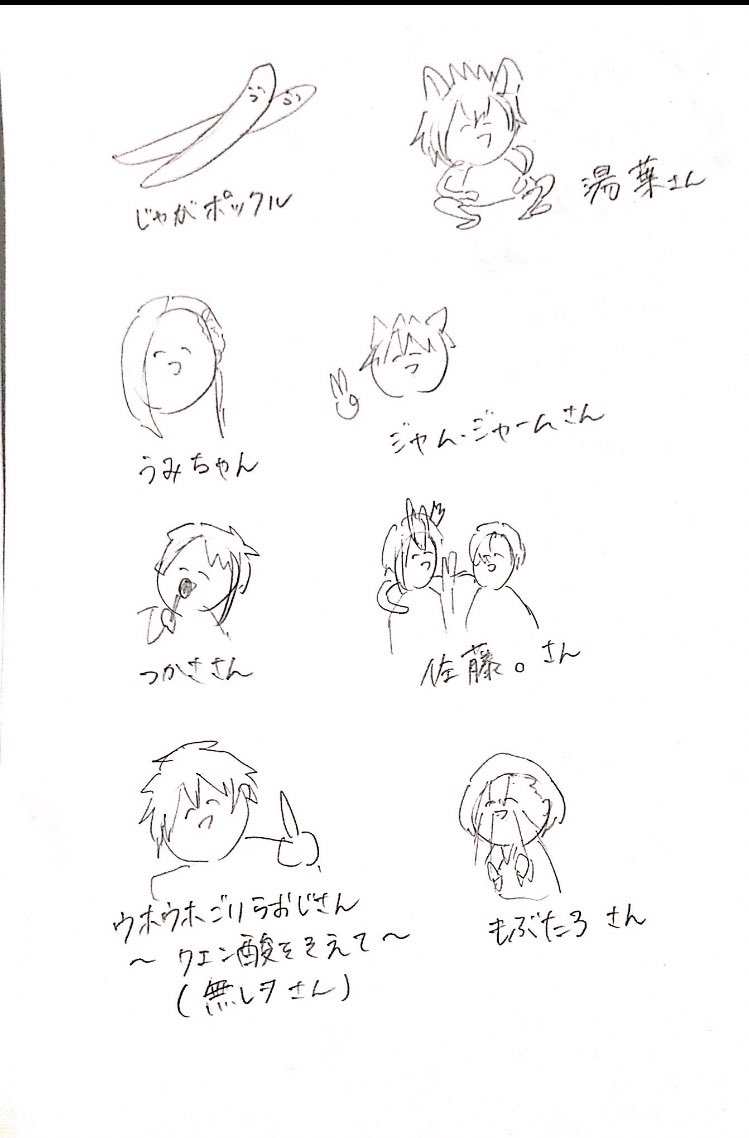 じゃがポックル
湯葉さん
うみちゃん
ジャム・ジャームさん
つかささん
佐藤。さん
ウホウホごりらおじさん
～クエン酸をそえて～
(無レヲさん)
もぶたろさん